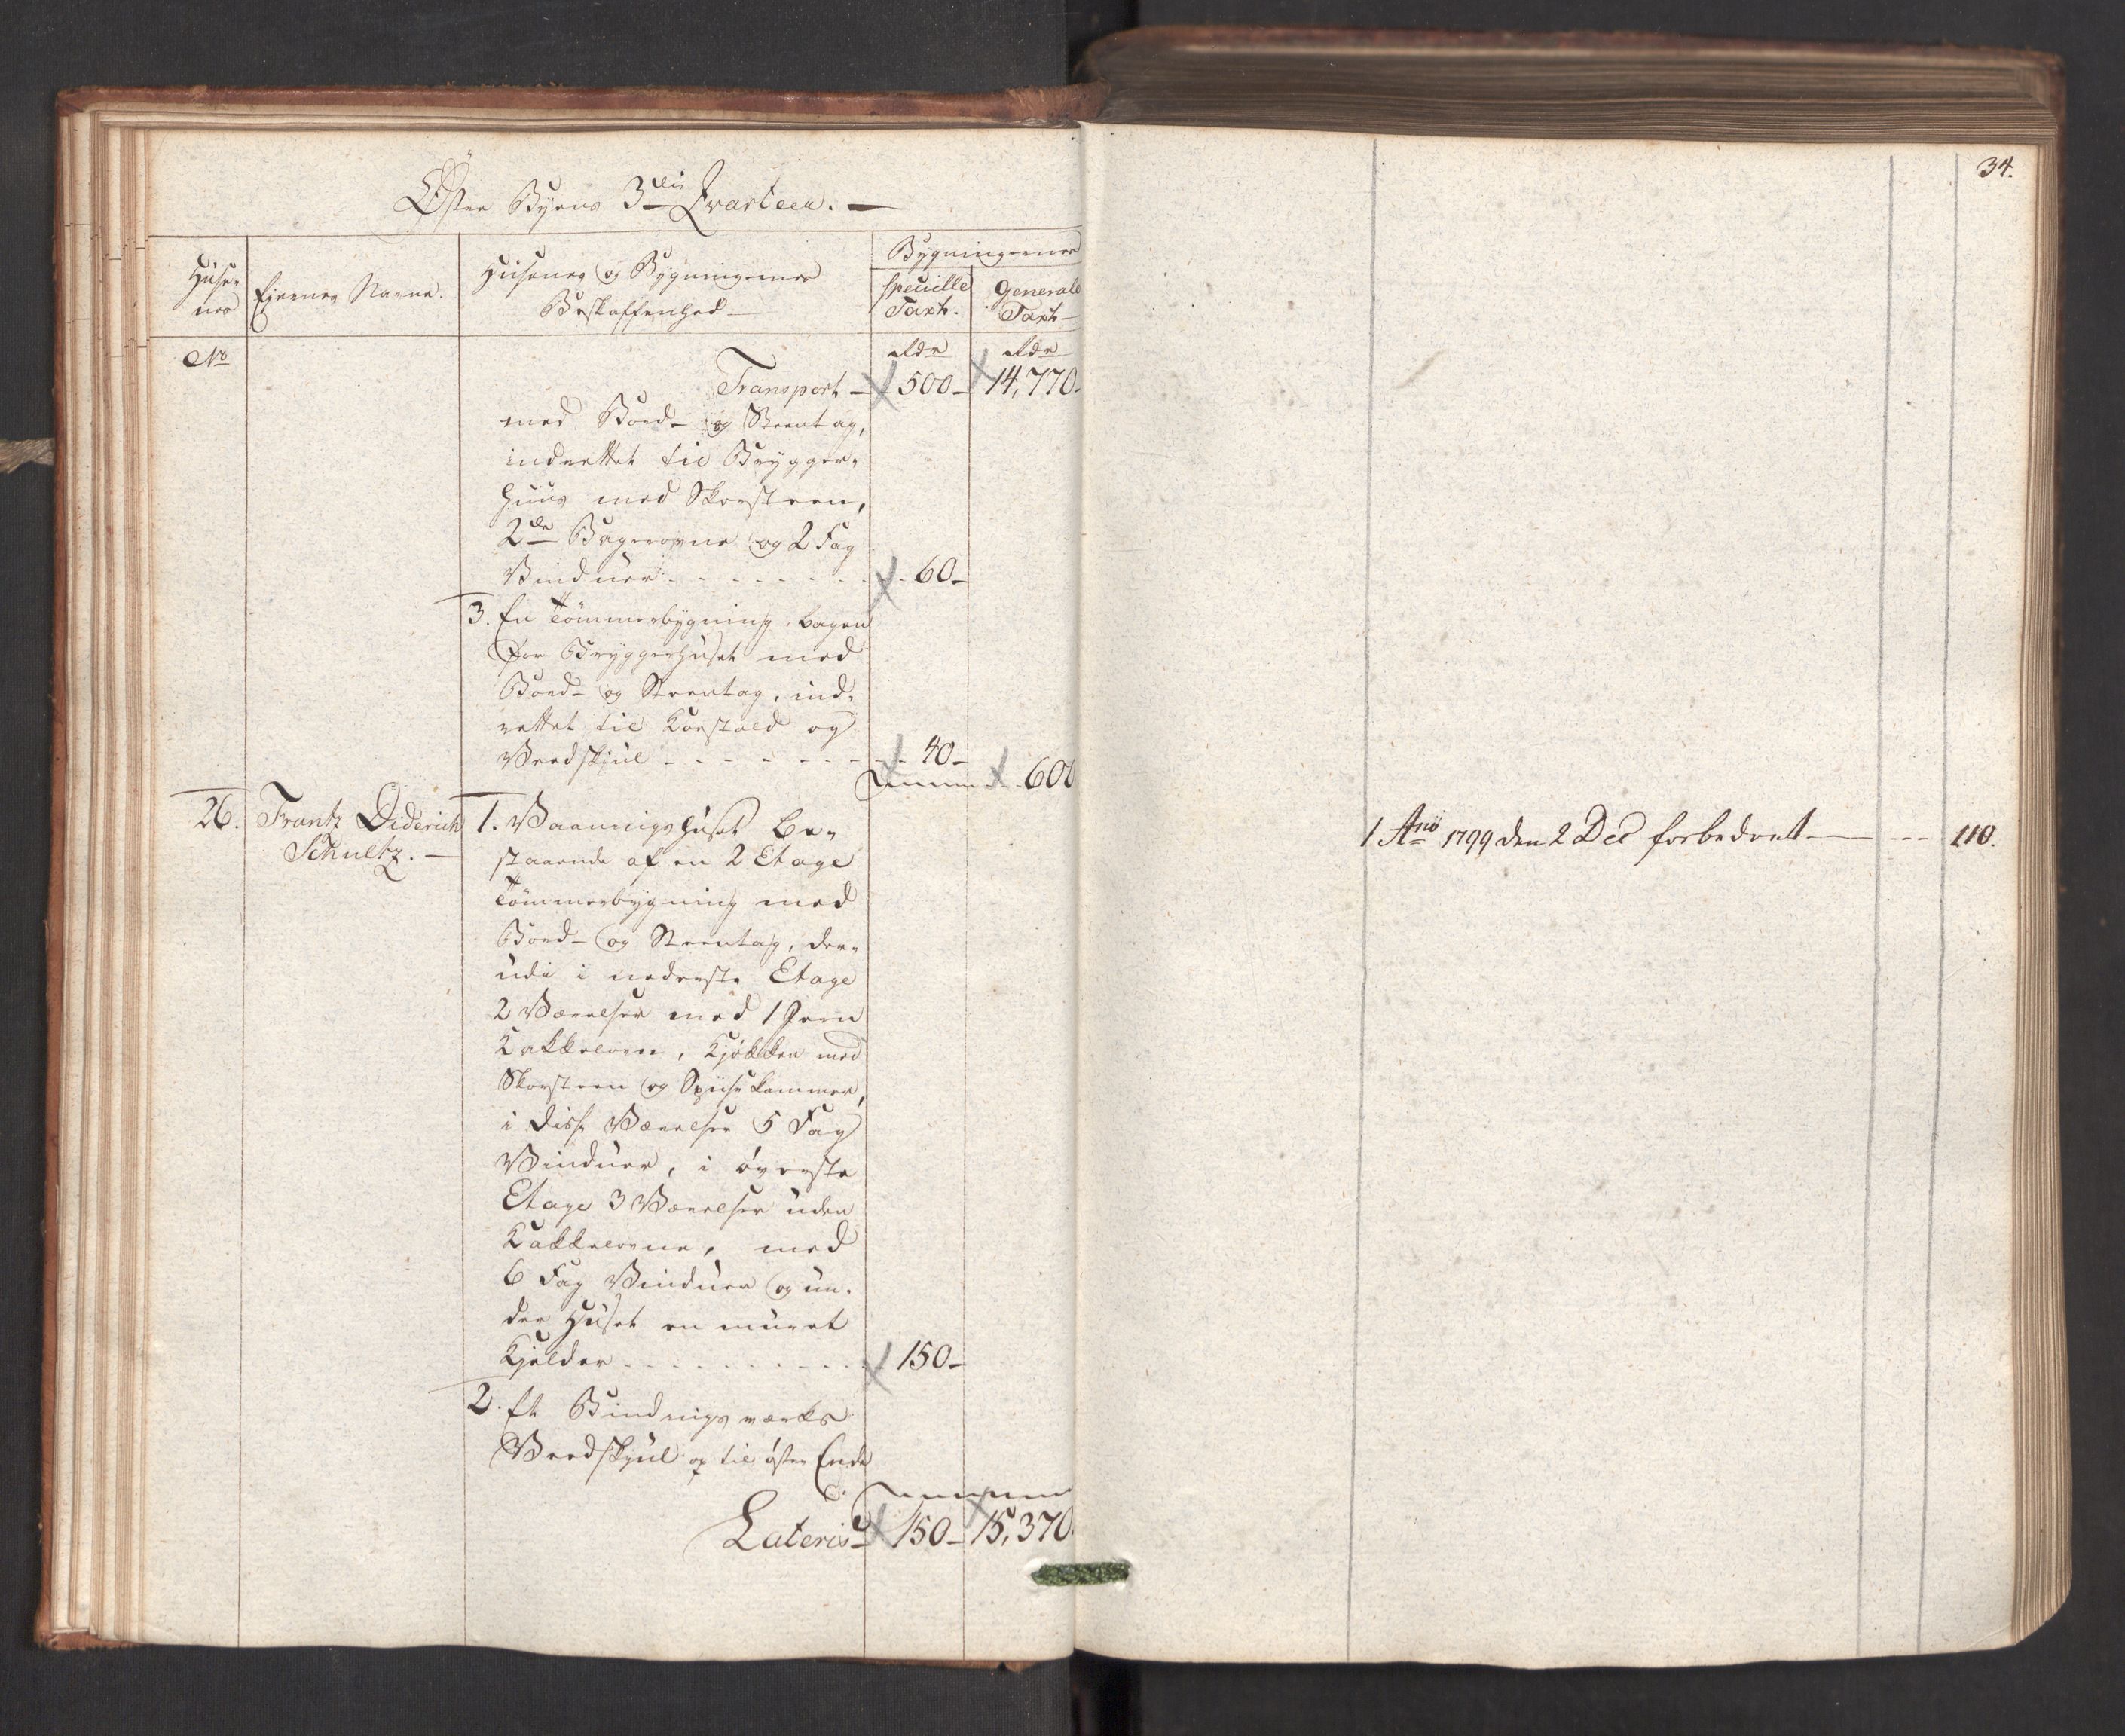 Øster Byens 3die Qvarteer. —
Huse-
nes
Eiernes Navne.
Husenes og Bygningernes
Beskaffenhed —
Bygningernes
specielle
Taxt.
Generale
Taxt —
No
Rdr
Rdr
Transport — 500 — 14,770.
med Bord- og Steentag,
indrettet til Brygger-
huus med Skorsteen,
2de Bagerovne og 2 Fag
Vinduer . . . . . . . 60 —
3. En Tømmerbygning, bagen
for Bryggerhuset med
Bord- og Steentag, ind-
rettet til Koestald og
Veedskjul - - - - - - - 40 —
600
26. Frantz Diderich
Schultz. —
1. Vaaningshuset be-
staaende af en 2 Etage
Tømmerbygning med
Bord- og Steentag, der-
udi i nederste Etage
2 Værelser med 1 Jern
Kakkelovn, Kjøkken med
Skorsteen og Spiisekammer,
i disse Værelser 5 Fag
Vinduer, i øverste
Etage 3 Værelser uden
Kakkelovne, med
6 Fag Vinduer og un-
der Huset en muret
Kjelder - - - - - - - - 150 —
2. Et Bindingsværks
Veedskjul op til østre Ende
Lateris — 150 — 15,370.
34.
1 Ano 1799 den 2 Dec forbedret — - - - 110.